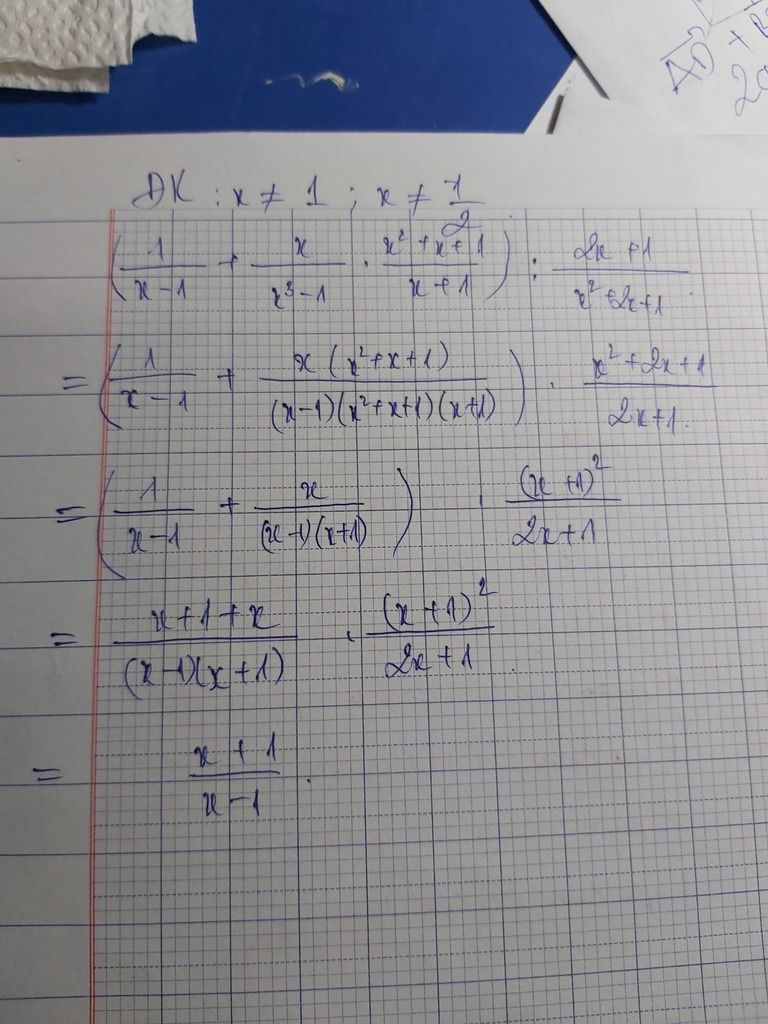 AD + B
20
ĐK : x ≠ 1 ; x ≠ 1/2
(1/(x-1) + x/(x³-1) . (x²+x+1)/(x+1)) : (2x+1)/(x²+2x+1)
= (1/(x-1) + x(x²+x+1)/((x-1)(x²+x+1)(x+1))) . (x²+2x+1)/(2x+1)
= (1/(x-1) + x/((x-1)(x+1))) . (x+1)²/(2x+1)
= (x+1+x)/((x-1)(x+1)) . (x+1)²/(2x+1)
= (x+1)/(x-1) .